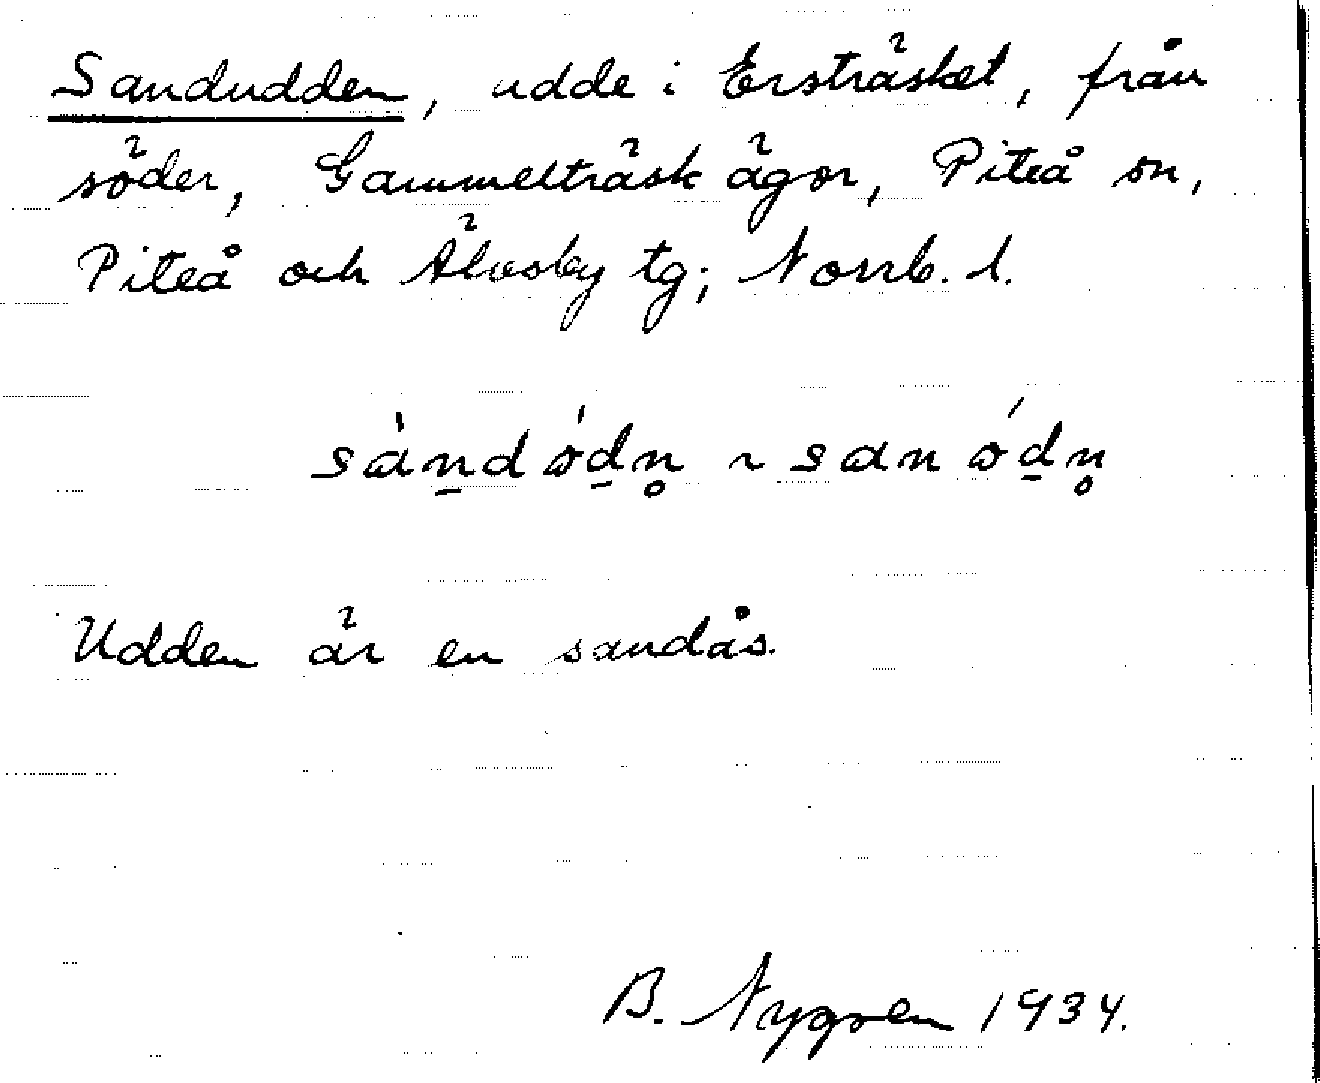 Sandudden, udde i Ersträsket, från
söder, Gammelträsk ägor, Piteå sn,
Piteå och Älvsby tg; Norrb. l.
sàndódn ~ sanódn
Udden är en sandås.
B. Nygren 1934.